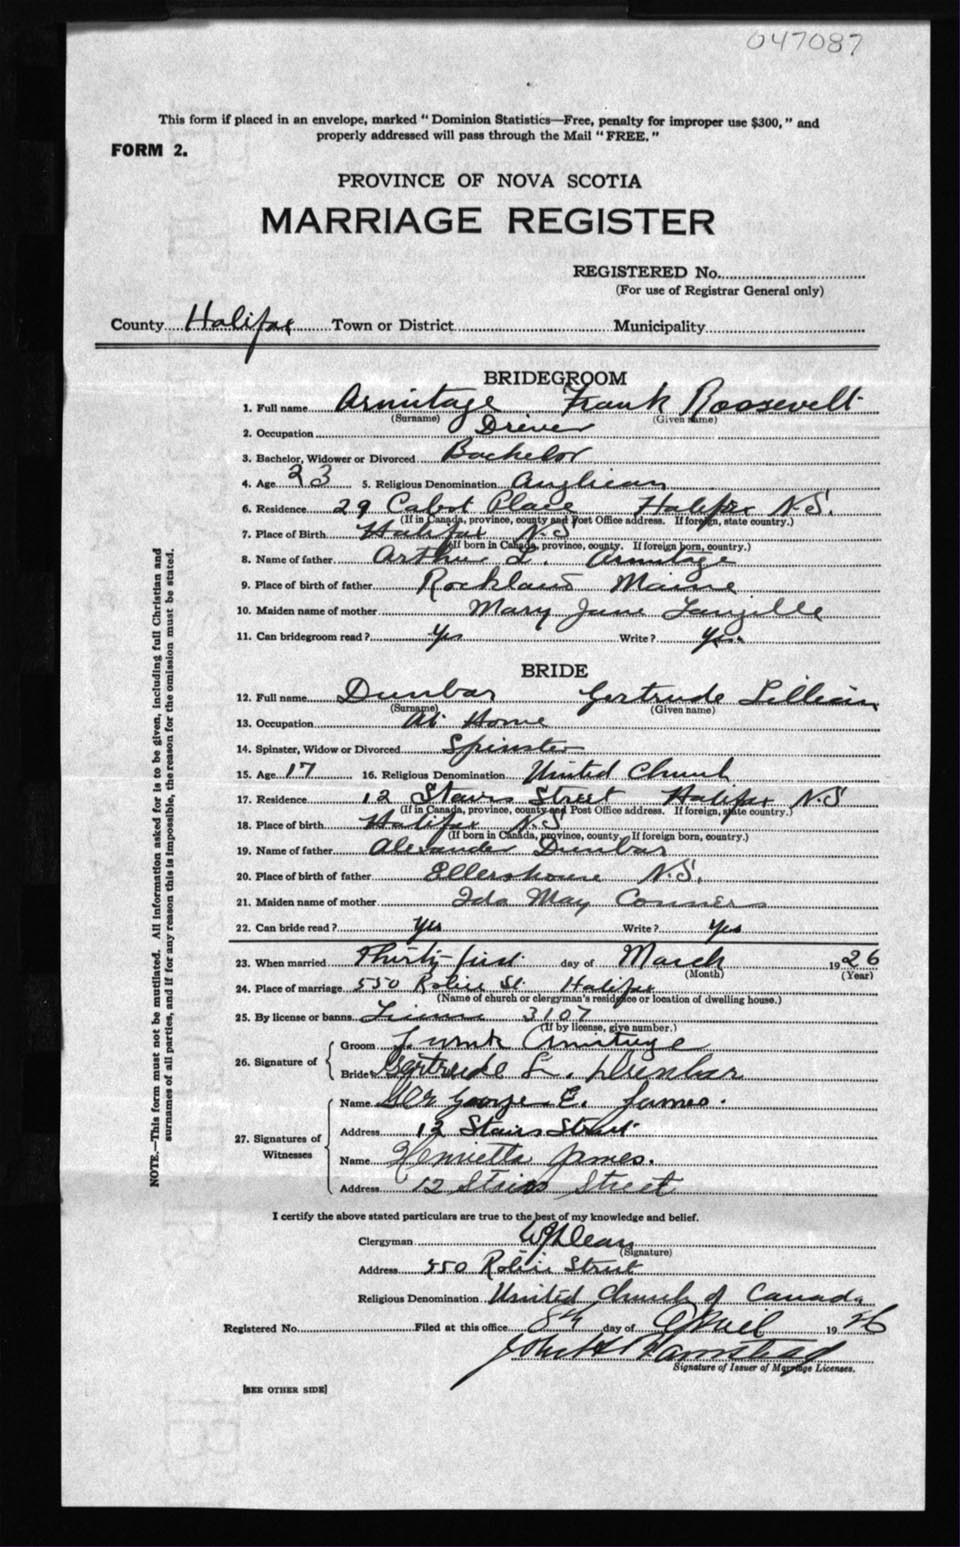 047087
This form if placed in an envelope, marked " Dominion Statistics—Free, penalty for improper use $300, " and
properly addressed will pass through the Mail " FREE. "
FORM 2.
PROVINCE OF NOVA SCOTIA
MARRIAGE REGISTER
REGISTERED No.
(For use of Registrar General only)
County Halifax Town or District Municipality
BRIDEGROOM
1. Full name Armitage Frank Roosevelt
(Surname) (Given name)
2. Occupation Driver
3. Bachelor, Widower or Divorced Bachelor
4. Age 23 5. Religious Denomination Anglican
6. Residence 29 Cabot Place Halifax N.S.
(If in Canada, province, county and Post Office address. If foreign, state country.)
7. Place of Birth Halifax N.S
(If born in Canada, province, county. If foreign born, country.)
8. Name of father Arthur L. Armitage
9. Place of birth of father Rockland Maine
10. Maiden name of mother Mary Jane Langille
11. Can bridegroom read? Yes Write? Yes.
BRIDE
12. Full name Dunbar Gertrude Lillian
(Surname) (Given name)
13. Occupation At Home
14. Spinster, Widow or Divorced Spinster
15. Age 17 16. Religious Denomination United Church
17. Residence 12 Stairs Street Halifax N.S
(If in Canada, province, county and Post Office address. If foreign, state country.)
18. Place of birth Halifax N.S
(If born in Canada, province, county. If foreign born, country.)
19. Name of father Alexander Dunbar
20. Place of birth of father Ellershouse N.S.
21. Maiden name of mother Ida May Conners
22. Can bride read? Yes Write? Yes
23. When married Thirty first day of March 1926
(Month) (Year)
24. Place of marriage 550 Robie St. Halifax
(Name of church or clergyman's residence or location of dwelling house.)
25. By license or banns License 3107
(If by license, give number.)
26. Signature of
Groom Frank Armitage
Bride Gertrude L. Dunbar
27. Signatures of Witnesses
Name George E. James.
Address 12 Stairs Street
Name Henrietta James.
Address 12 Stairs Street
I certify the above stated particulars are true to the best of my knowledge and belief.
Clergyman
(Signature)
Address 550 Robie Street
Religious Denomination United Church of Canada
Registered No. Filed at this office 8th day of April 1926
John H Barnstead
Signature of Issuer of Marriage Licenses.
[SEE OTHER SIDE]
NOTE.—This form must not be mutilated. All information asked for is to be given, including full Christian and
surnames of all parties, and if for any reason this is impossible, the reason for the omission must be stated.